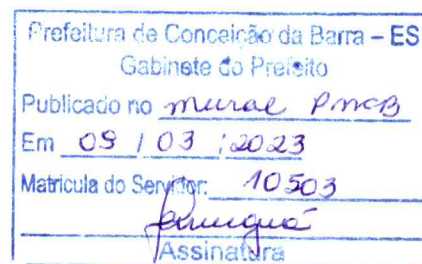 Prefeitura de Conceição da Barra – ES
Gabinete do Prefeito
Publicado no mural PMCB
Em 09 / 03 / 2023
Matricula do Servidor: 10503
Assinatura